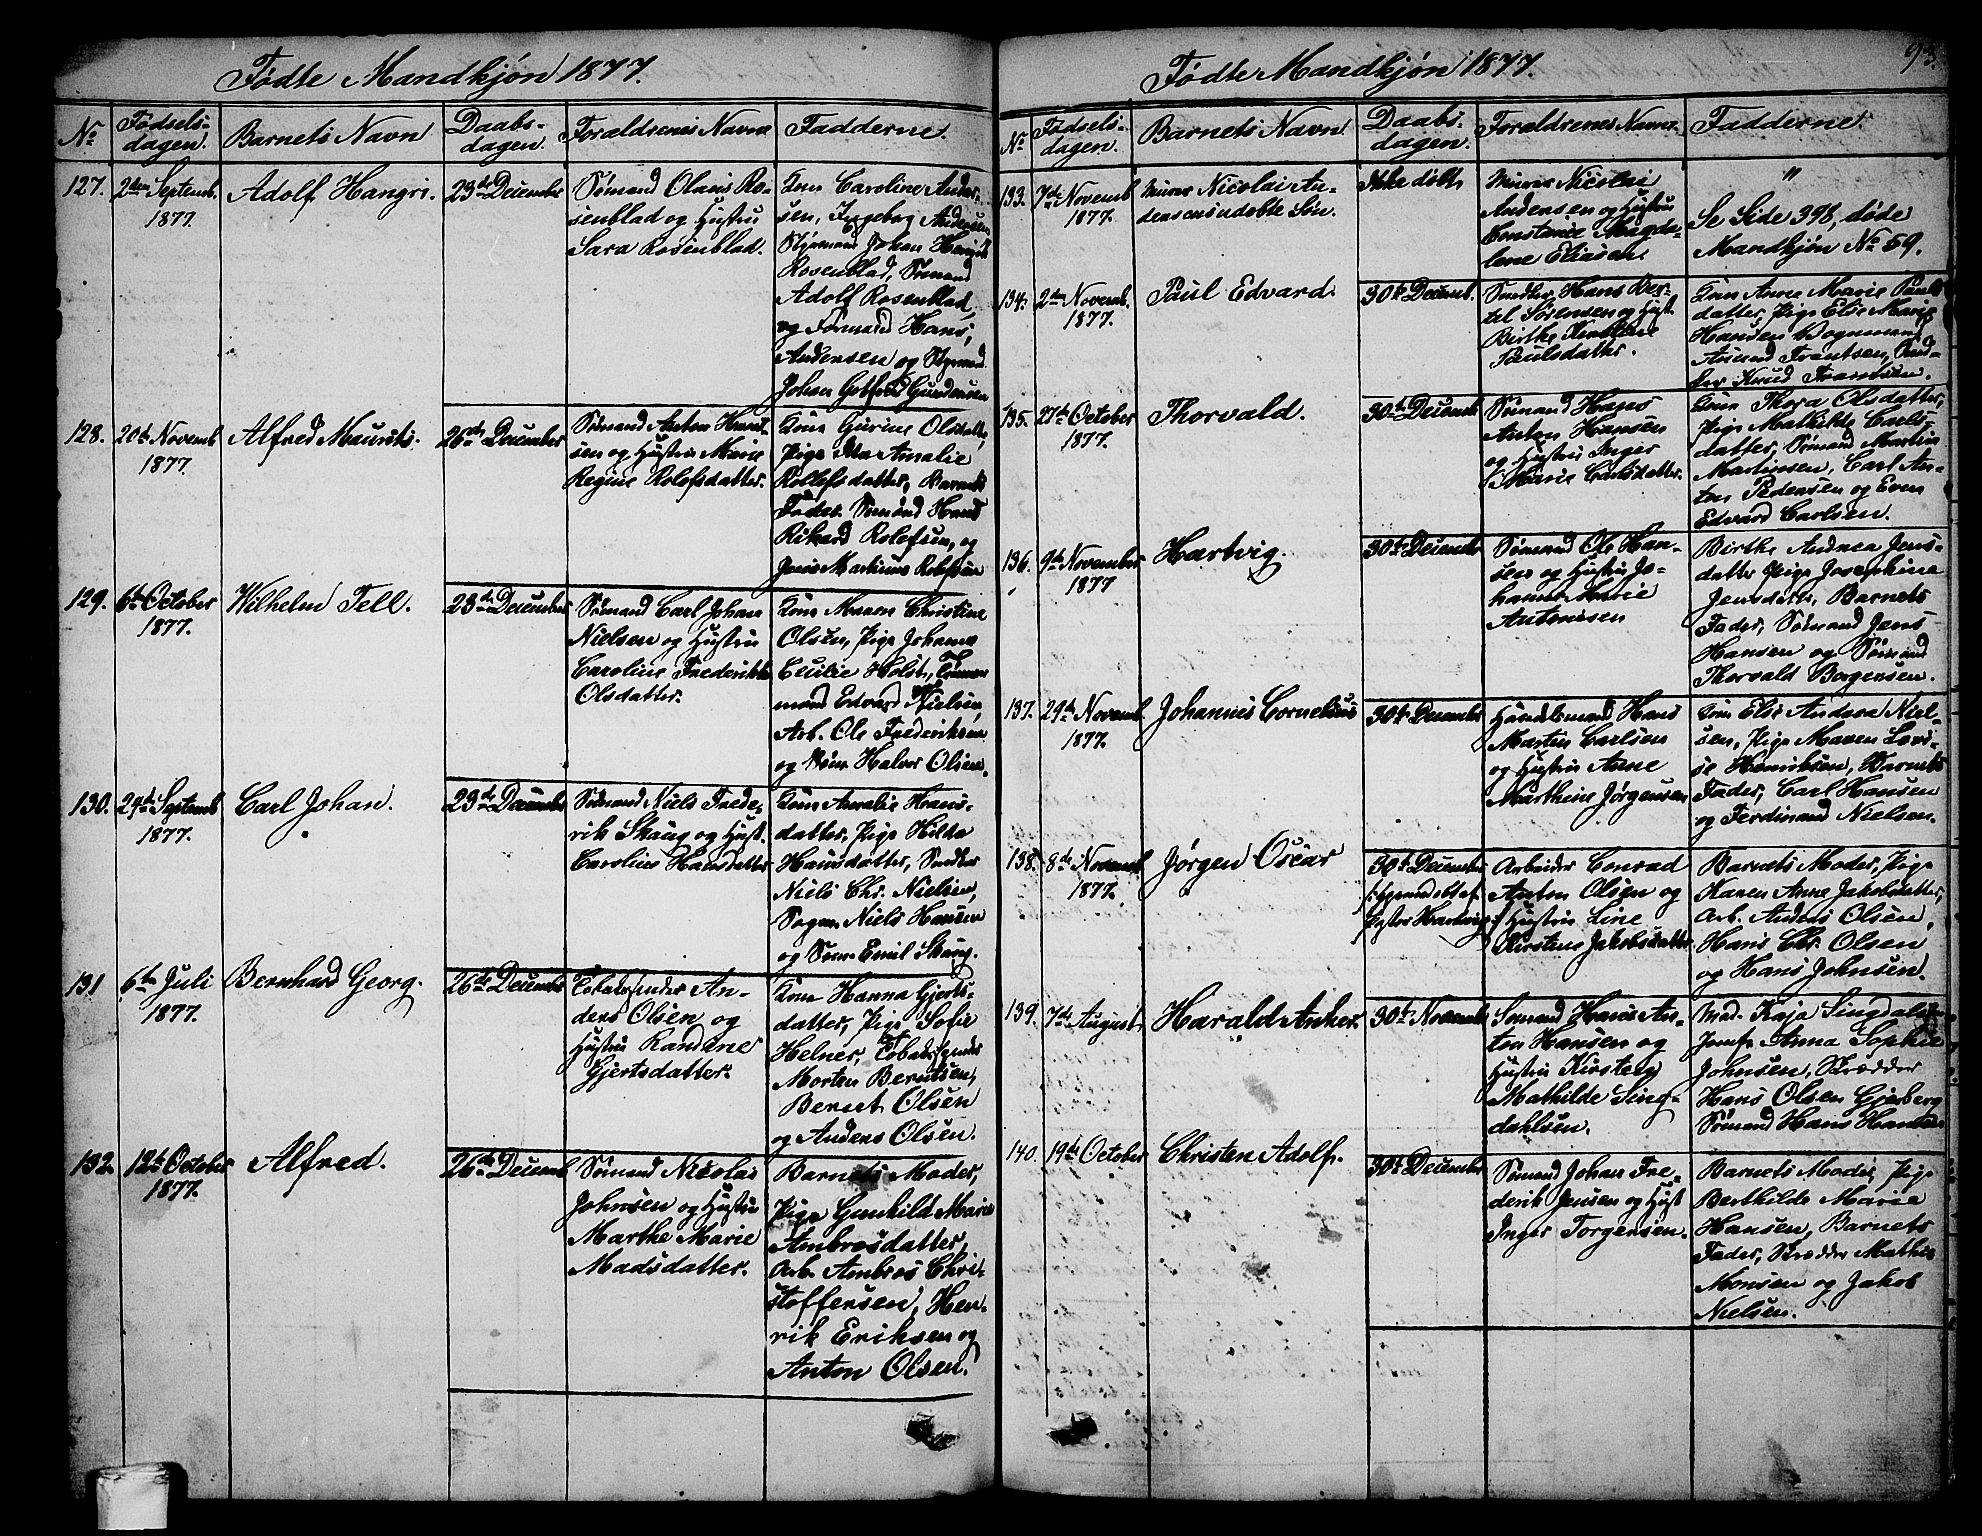 Fødte Mandkjøn 1877.
No
Fødsels-
dagen.
Barnets Navn
Daabs-
dagen.
Forældrenes Navne
Fadderne.
127.
2den Septemb.
1877.
Adolf Hangri.
23de December
Sømand Olaus Ro-
senblad og Hustru
Sara Rosenblad.
Kone Caroline Ander-
sen, Ingeborg Andersen
Styrmand Johan
Rosenblad, Sømand
Adolf Rosenblad,
og Formand Hans
Andersen og Styrmand
Johan Gotfred Gundersen
128.
20de Novemb.
1877.
Alfred Maurits.
26de December
Sømand Anton
sen og Hustru Marie
Regine Rolefsdatter.
Kone Gurine Olsdatter,
Pige Ida Amalie
Rollefsdatter, Barnets
Fader. Sømand Hans
Rikard Rolefsen, og
Martinius Rolefsen
129.
6te October
1877.
Wilhelm Tell.
23de December
Sømand Carl Johan
Nielsen og Hustru
Caroline Frederikke
Olsdatter.
Kone Maren Christine
Olsen, Pige Johanne
Cecilie Holst, Tømmer
mand Edvard Nielsen,
Arb. Ole Frederiksen
og Halvor Olsen.
130.
29de Septemb
1877.
Carl Johan.
23de December
Sømand Niels Frede-
rik Skaug og Hust.
Caroline Hansdatter
Kone Amalie Hans-
datter, Pige Hilda
Hansdatter, Snedker
Niels Chr. Nielsen,
Niels Hansen
og Sømd Emil Skaug.
131
6te Juli
1877.
Bernhard Georg.
26de December
Tobaksspinder An-
ders Olsen og
Hustru Randine
Gjertsdatter.
Kone Hanna Gjerts-
datter, Pige Sofie
Helner, Tobaksspinder
Morten Berntsen,
Berent Olsen
og Anders Olsen.
132.
12te October
1877.
Alfred.
26de Decemb
Sømand Nicolai
Johnsen og Hustru
Marthe Marie
Madsdatter.
Barnets Moder,
Pige Gunhild Marie
Ambrosdatter,
Arb. Ambros Chri-
stoffersen, Hen-
rik Eriksen og
Anton Olsen.
Fødte Mandkjøn 1877.
93.
No
Fødsels-
dagen.
Barnets Navn
Daabs-
dagen.
Forældrenes Navne.
Fadderne.
133.
7de Novemb
1877.
Murer Nicolai An-
dersens udøbte Søn.
Ikke døbt.
Murer Nicolai
Andersen og Hustru
Constance Magda-
lene Eliasen.
"
Se Side 398, døde
Mandkjøn No 59.
134.
2den Novemb.
1877.
Paul Edvard.
30te Decemb.
Smed Hans Ber-
tel Sørensen og Hust.
Birthe
Paulsdatter.
Kone Anne Marie Pauls
datter, Pige Else Marie
Hansen Vognmand
Amund Frantsen, Sned-
ker Knud Frantsen.
135.
27de October
1877.
Thorvald.
30te Decemb
Sømand Hans
Anton Hansen
og Hustru Inger
Marie Carlsdatter.
Kone Thora Olsdatter,
Pige Mathilde Carls-
datter, Sømand Martin
Martinsen, Carl An-
ton Pedersen og Even
Edvard Carlsen.
136.
9de November
1877
Hartvig.
30te December
Sømand Ole Han-
sen og Hustru Jo-
hanne Marie
Antonisen
Birthe Andrea Jens-
datter Pige Josephine
Jensdatter, Barnets
Fader, Sømand Jens
Hansen og Sømand
Thorvald Borgersen.
137.
29de Novemb.
1877.
Johannes Cornelius
30te December
Handelsmand Hans
Martin Carlsen
og Hustru Anne
Marthine Jørgensen
Kone Else Andrea Niel-
sen, Pige Maren Lovi-
se Henriksen, Barnets
Fader, Carl Hansen
og Ferdinand Nielsen.
138.
8de Novemb
1877.
Jørgen Oscar
30te December
/: hjemmedøbt af
Pastor Hartvig :/
Arbeider Conrad
Anton Olsen og
Hustru Line
Kirstine Jakobsdatter
Barnets Moder, Pige
Karen Anne Jakobsdatter,
Arb. Anders Olsen,
Hans Chr. Olsen
og Hans Johnsen.
139.
7de August
Harald Anker.
30te Novemb
Sømand Hans An-
ton Hansen og
Hustru Kirsten
Mathilde Sing-
dahlsen.
Mad. Kaja Singdalsen
Jomfr Anna Sophie
Johnsen, Skrædder
Hans Olsen Gjerberg
Sømand Hans Hansen
140.
19de October
Christen Adolf.
30te December
Sømand Johan Fre-
derik Jensen og Hust
Inger Torgersen.
Barnets Moder, Pige
Berthilde Marie
Hansen, Barnets
Fader, Skrædder Mathis
Monsen og Jakob
Nielsen.